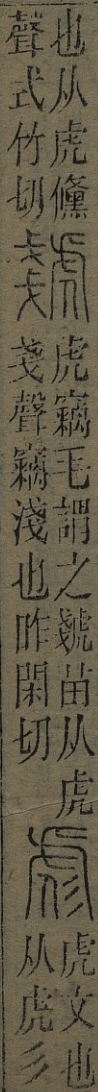 也从虎儵
聲式竹切
虦
虎竊毛謂之虦苗从虎
戔聲竊淺也昨閑切
彪
虎文也
从虎彡